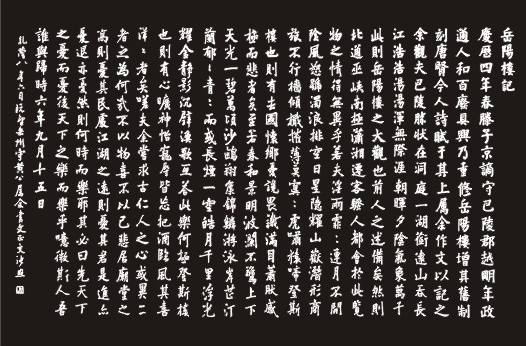 岳陽樓記
慶曆四年春滕子京謫守巴陵郡越明年政
通人和百廢具興乃重修岳陽樓增其舊制
刻唐賢今人詩賦于其上屬余作文以記之
余觀夫巴陵勝狀在洞庭一湖銜遠山吞長
江浩浩蕩蕩渾無際涯朝暉夕陰氣象萬千
此則岳陽樓之大觀也前人之述備矣然則
北通巫峽南極瀟湘遷客騷人都會於此覽
物之情得無異乎若夫淫雨霏霏連月不開
陰風怒號濁浪排空日星隱耀山嶽潛形商
旅不行檣傾檝摧薄暮冥冥虎嘯猿啼登斯
樓也則有去國懷鄉憂讒畏譏滿目蕭然感
極而悲者矣至若春和景明波瀾不驚上下
天光一碧萬頃沙鷗翔集錦鱗游泳岸芷汀
蘭郁郁青青而或長煙一空皓月千里浮光
耀金靜影沉璧漁歌互答此樂何極登斯樓
也則有心曠神怡寵辱皆忘把酒臨風其喜
洋洋者矣嗟夫余嘗求古仁人之心或異二
者之為何哉不以物喜不以己悲居廟堂之
高則憂其民處江湖之遠則憂其君是進亦
憂退亦憂然則何時而樂耶其必曰先天下
之憂而憂後天下之樂而樂乎噫微斯人吾
誰與歸時六年九月十五日